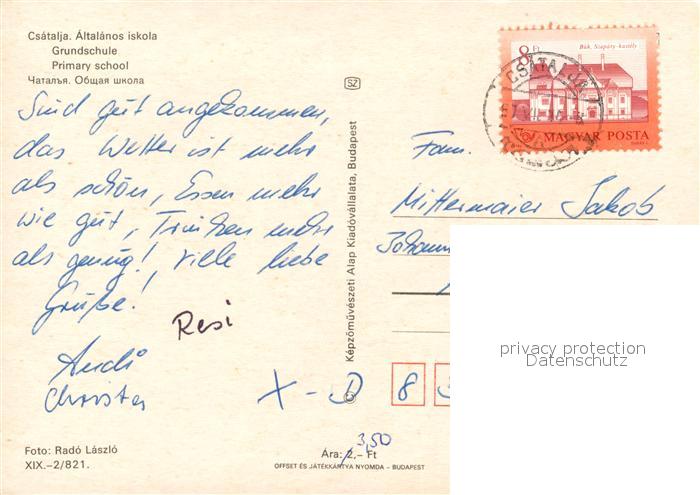 Csátalja. Általános iskola
Grundschule
Primary school
Чаталъя. Общая школа
Sind gut angekommen,
das Wetter ist mehr
als schön, Essen mehr
wie gut, Trinken mehr
als genug! Viele liebe
Grüße!
Resi
Andi
Christa
Foto: Radó László
XIX.–2/821.
SZ
Képzőművészeti Alap Kiadóvállalata, Budapest
8 Ft
Bük, Szapáry-kastély
MAGYAR POSTA
CSÁTALJA
Fam.
Mittermaier Jakob
Johann
X - D 8
Ára: 2,– Ft
3,50
OFFSET ÉS JÁTÉKKÁRTYA NYOMDA – BUDAPEST
privacy protection
Datenschutz